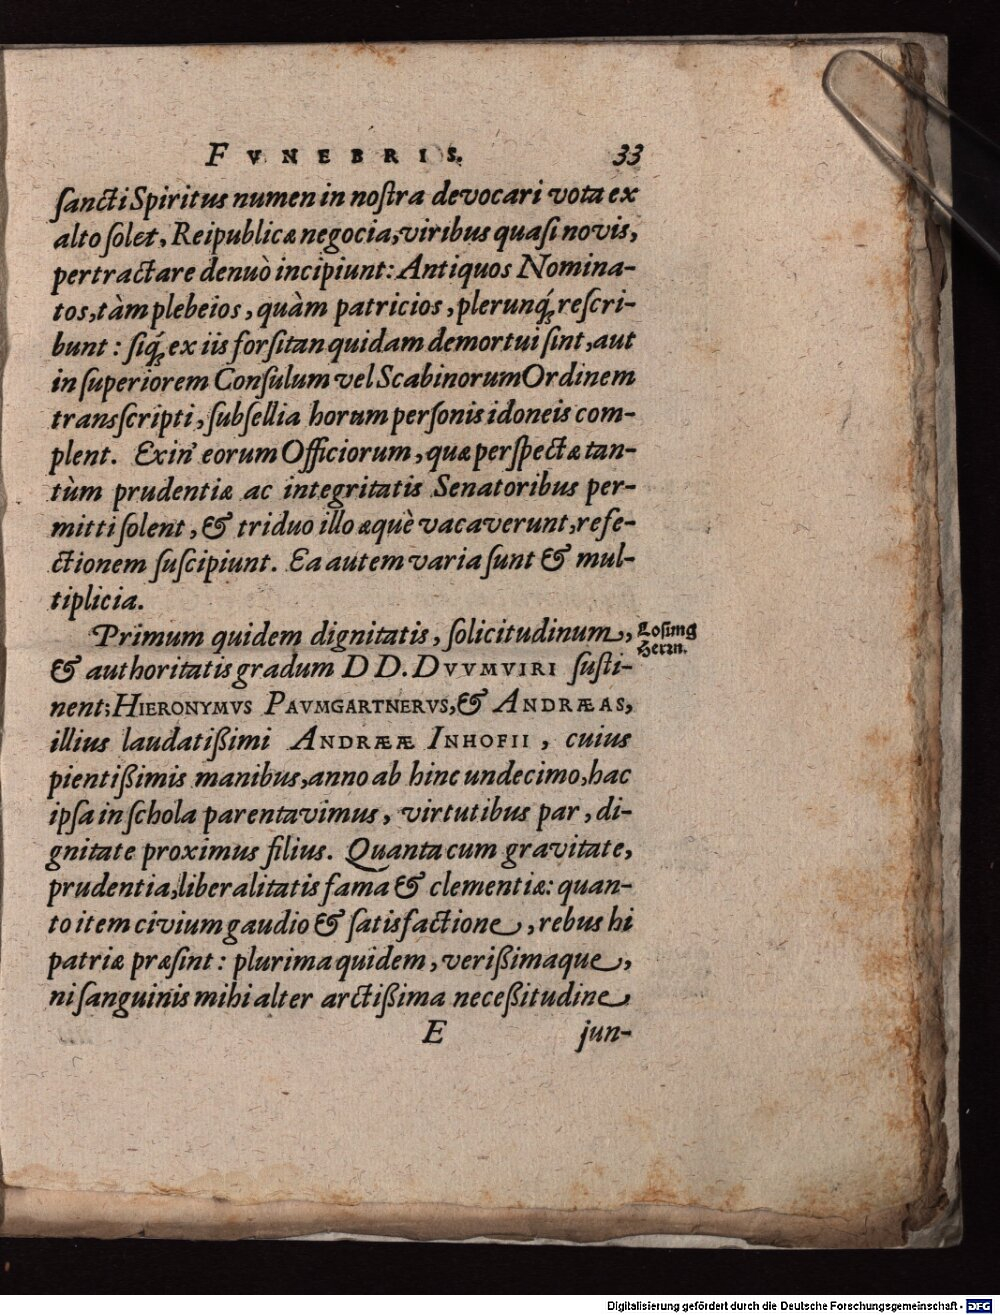 FVNEBRIS. 33
ſancti Spiritus numen in noſtra devocari vota ex
alto ſolet, Reipublicæ negocia, viribus quaſi novis,
pertractare denuò incipiunt: Antiquos Nomina-
tos, tàm plebeios, quàm patricios, plerunq́; reſcri-
bunt: ſiq́; ex iis forſitan quidam demortui ſint, aut
in ſuperiorem Conſulum vel Scabinorum Ordinem
transſcripti, ſubſellia horum perſonis idoneis com-
plent. Exin' eorum Officiorum, quæ perſpectæ tan-
tùm prudentiæ ac integritatis Senatoribus per-
mitti ſolent, & triduo illo æquè vacaverunt, refe-
ctionem ſuſcipiunt. Ea autem varia ſunt & mul-
tiplicia.
Primum quidem dignitatis, ſolicitudinum,
Loſung
Herrn.
& authoritatis gradum DD. DVVMVIRI ſuſti-
nent; HIERONYMVS PAVMGARTNERVS, & ANDRÆAS,
illius laudatißimi ANDRÆÆ INHOFII, cuius
pientißimis manibus, anno ab hinc undecimo, hac
ipſa in ſchola parentavimus, virtutibus par, di-
gnitate proximus filius. Quanta cum gravitate,
prudentia, liberalitatis fama & clementiæ: quan-
to item civium gaudio & ſatisfactione, rebus hi
patriæ præſint: plurima quidem, verißimaque,
ni ſanguinis mihi alter arctißima neceßitudine
E jun-
Digitalisierung gefördert durch die Deutsche Forschungsgemeinschaft - DFG